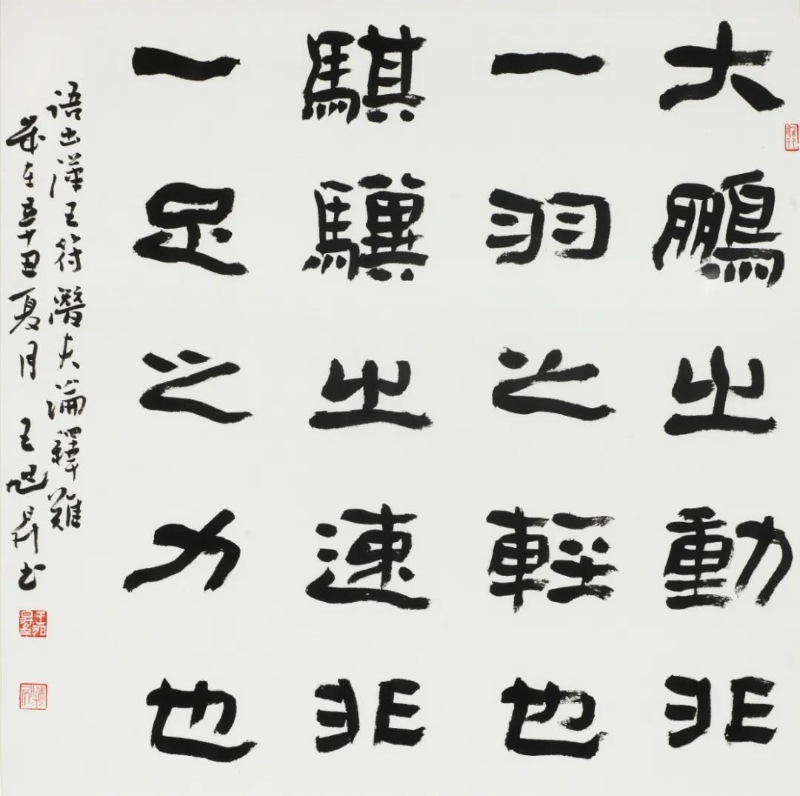 大鵬之動非
一羽之輕也
騏驥之速非
一足之力也
語出漢王符潛夫論釋難
歲在辛丑夏月王旭昇書